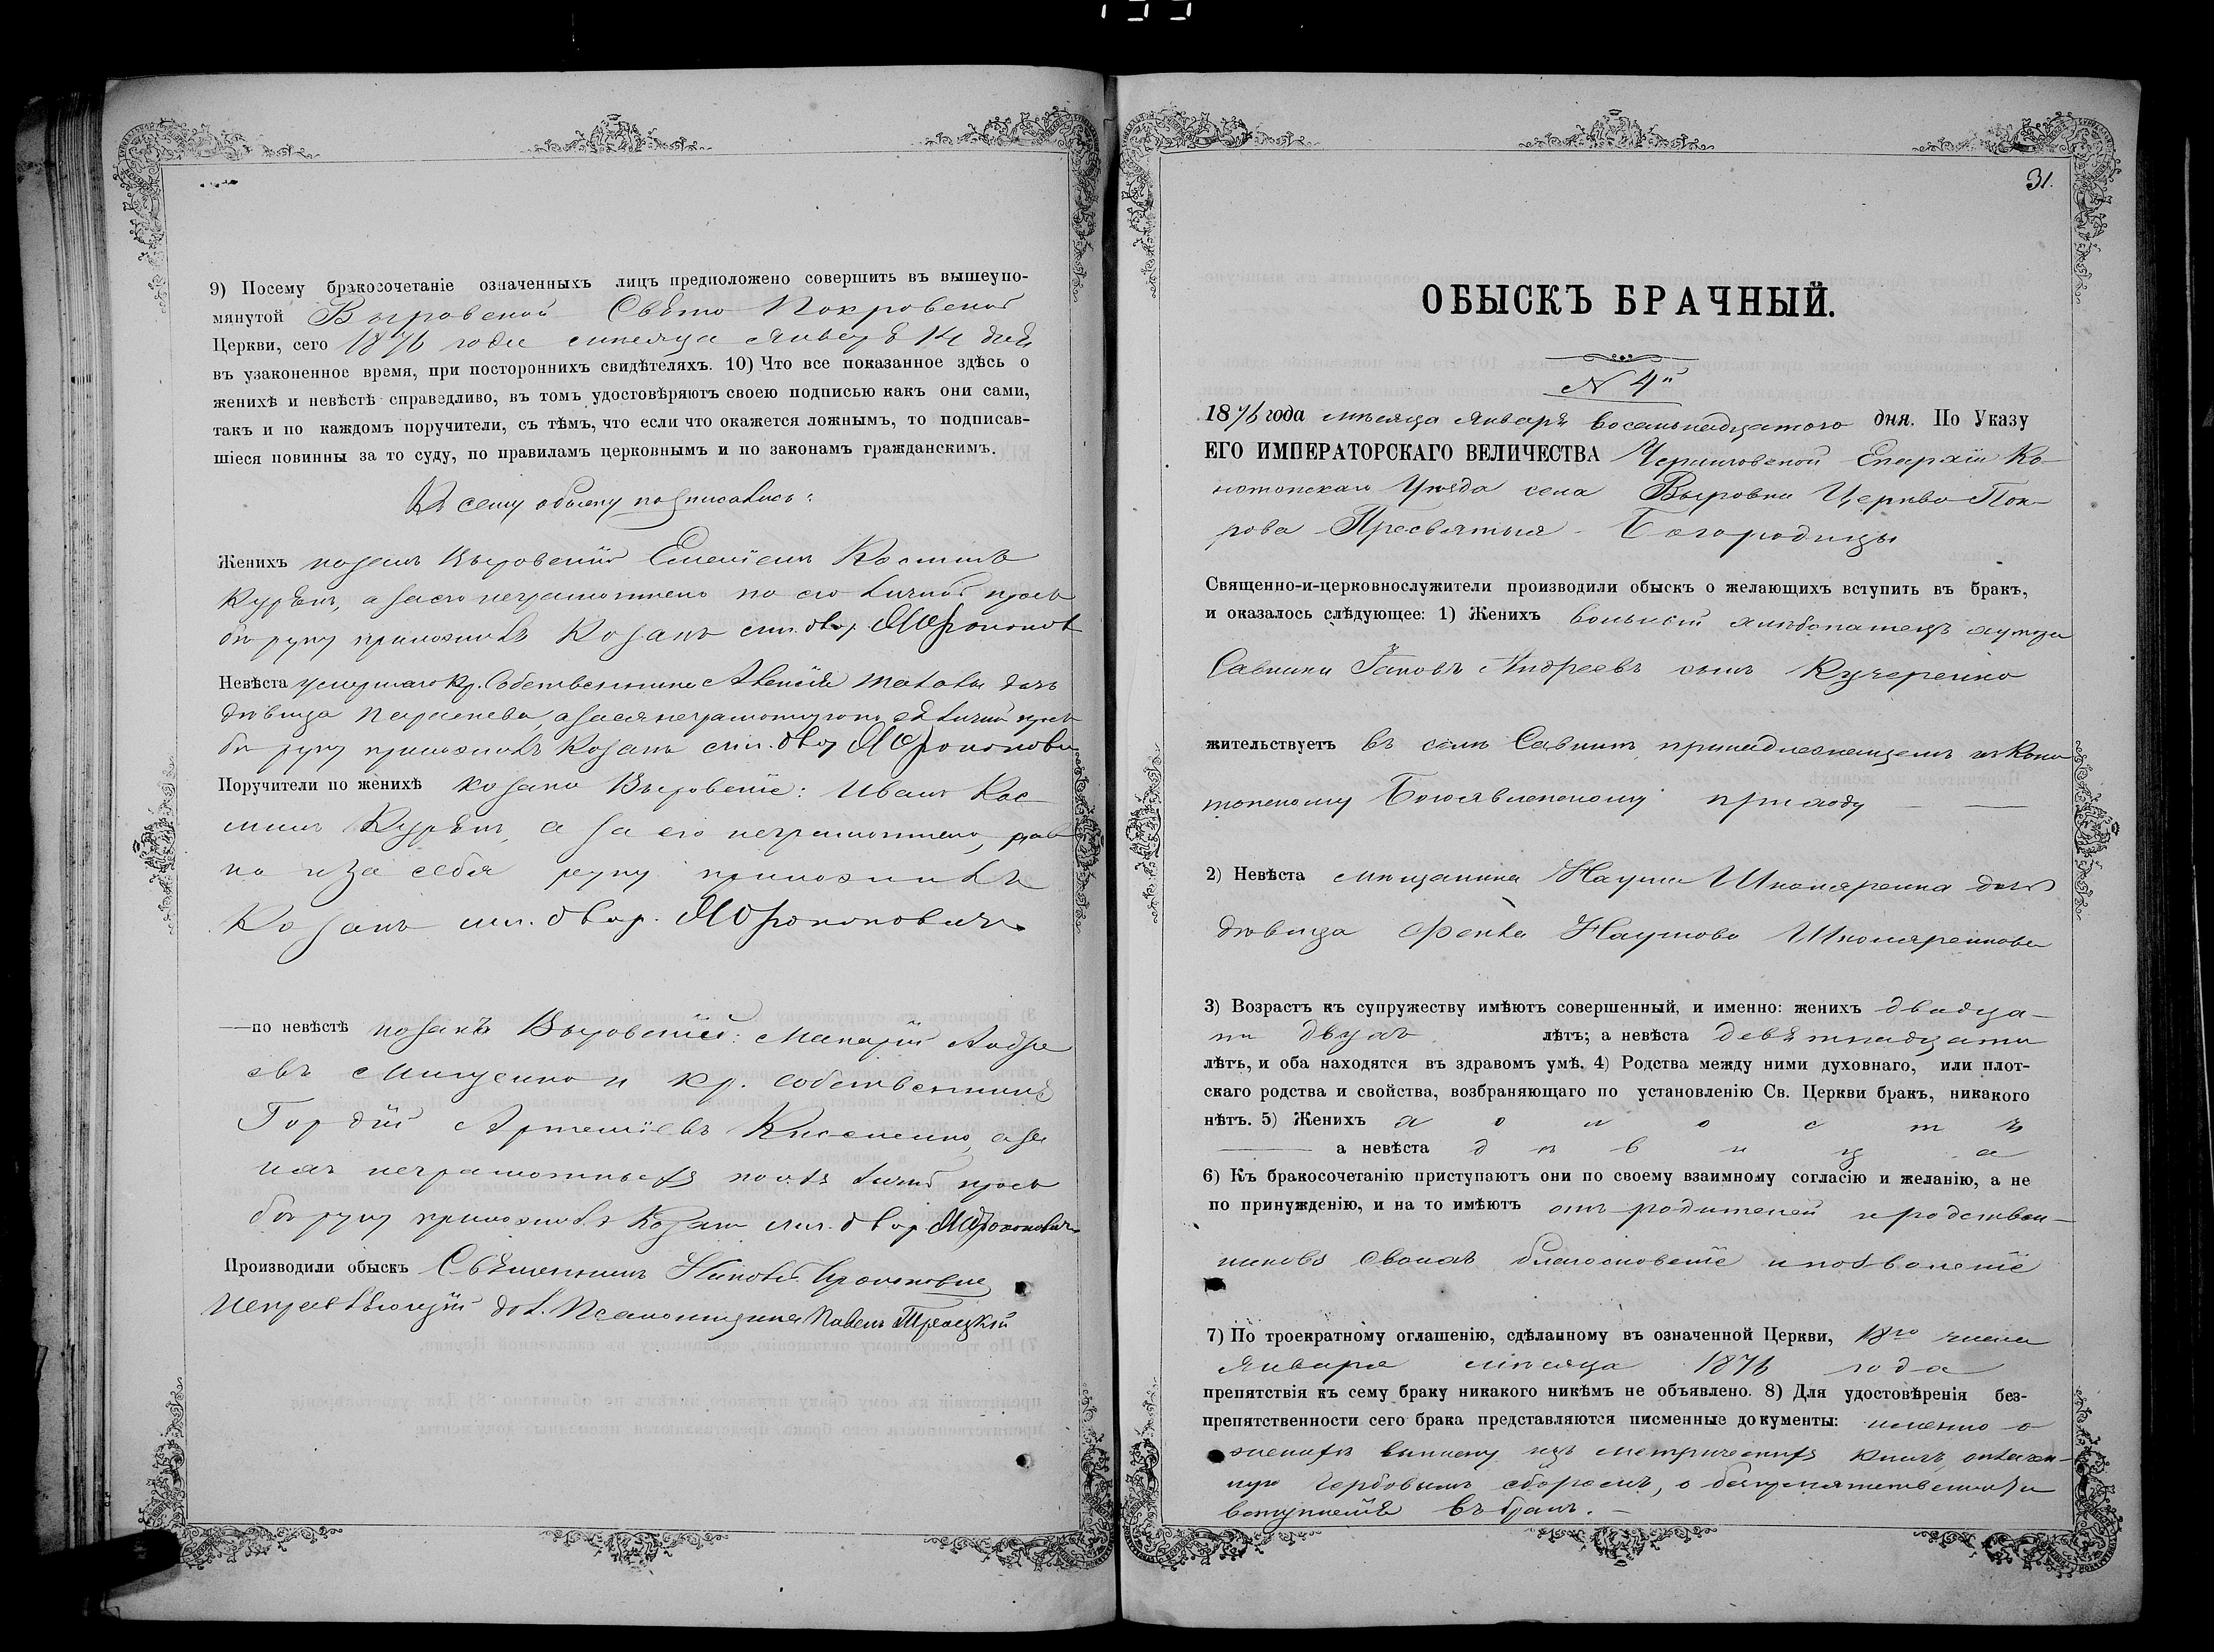 9) Посему бракосочетаніе означенныхъ лицъ предположено совершить въ вышеупо-
мянутой Выровской Свято Покровской
Церкви, сего 1876 года мѣсяца Январѣ 14 дня
въ узаконенное время, при постороннихъ свидѣтеляхъ. 10) Что все показанное здѣсь о
женихѣ и невѣстѣ справедливо, въ томъ удостовѣряютъ своею подписью какъ они сами,
такъ и по каждомъ поручители, съ тѣмъ, что если что окажется ложнымъ, то подписав-
шіеся повинны за то суду, по правиламъ церковнымъ и по законамъ гражданскимъ.
Къ сему обыску подписались:
Женихъ козакъ Выровскій
а за его неграмотного по его личной прось
бѣ руку приложилъ Козакъ
Невѣста умершаго Кр. Собственника дочь
дѣвица
бѣ руку приложилъ Козакъ
Поручители по женихѣ козаки Выровскіе: Иванъ Кос
а за его неграмотного, рав
но и за себя руку приложилъ
Козакъ
—по невѣстѣ козакъ Выровскій: Макарій Андре
евъ Мищенко и кр. собственникъ
Гордій Артеміевъ Киселенко, а за
ихъ неграмотныхъ по ихъ личной прось
бѣ руку приложилъ Козакъ
Производили обыскъ Священникъ
Исправляющій дол. Псаломщика Павелъ Троицкій
31.
ОБЫСКЪ БРАЧНЫЙ.
N 4й
1876 года мѣсяца Январѣ восемьнадцатого дня. По Указу
ЕГО ИМПЕРАТОРСКАГО ВЕЛИЧЕСТВА Черниговской Епархіи Ко-
нотопскаго Уѣзда села Выровки Церкви Пок-
рова Пресвятыя Богородицы
Священно-и-церковнослужители производили обыскъ о желающихъ вступить въ бракъ,
и оказалось слѣдующее: 1) Женихъ вольный хлѣбопашецъ хутора
Савинки Іаковъ Андреевъ сынъ Кучеренко
жительствуетъ въ селѣ Савинкѣ, принадлежащемъ къ Коно
топскому Богоявленскому приходу
2) Невѣста мѣщанина Наума Шкомаренка дочь
дѣвица Фекла Наумова Шкомаренкова
3) Возрастъ къ супружеству имѣютъ совершенный, и именно: женихъ двадца-
ти двухъ лѣтъ; а невѣста девятнадцати
лѣтъ, и оба находятся въ здравомъ умѣ. 4) Родства между ними духовнаго, или плот-
скаго родства и свойства, возбраняющаго по установленію Св. Церкви бракъ, никакого
нѣтъ. 5) Женихъ х о л о с т ъ
а невѣста д ѣ в и ц а
6) Къ бракосочетанію приступаютъ они по своему взаимному согласію и желанію, а не
по принужденію, и на то имѣютъ отъ родителей и родствен-
никовъ своихъ благословеніе и позволеніе
7) По троекратному оглашенію, сдѣланному въ означенной Церкви, 18го числа
Января мѣсяца 1876 года
препятствія къ сему браку никакого никѣмъ не объявлено. 8) Для удостовѣренія без-
препятственности сего брака представляются писменные документы: именно о
женихѣ выписку изъ метрическихъ книгъ, оплачен-
ную гербовымъ сборомъ, о безпрепятственномъ
вступленіи въ бракъ.